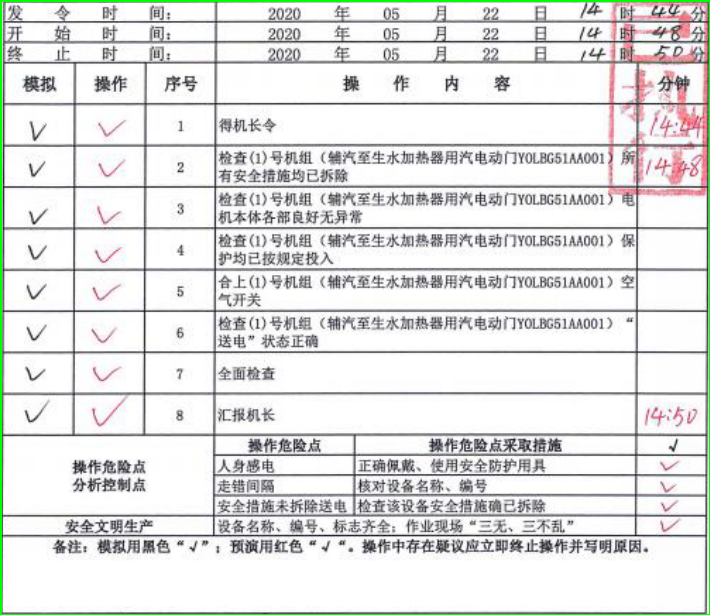 发令时间： 2020 年 05 月 22 日 14 时 44 分
开始时间： 2020 年 05 月 22 日 14 时 48 分
终止时间： 2020 年 05 月 22 日 14 时 50 分
模拟 操作 序号 操作内容 分钟
√ √ 1 得机长令 14:44
√ √ 2 检查(1)号机组（辅汽至生水加热器用汽电动门YOLBG51AA001）所 14:48
有安全措施均已拆除
√ √ 3 检查(1)号机组（辅汽至生水加热器用汽电动门YOLBG51AA001）电
机本体各部良好无异常
√ √ 4 检查(1)号机组（辅汽至生水加热器用汽电动门YOLBG51AA001）保
护均已按规定投入
√ √ 5 合上(1)号机组（辅汽至生水加热器用汽电动门YOLBG51AA001）空
气开关
√ √ 6 检查(1)号机组（辅汽至生水加热器用汽电动门YOLBG51AA001）“
送电”状态正确
√ √ 7 全面检查
√ √ 8 汇报机长 14:50
操作危险点
分析控制点
操作危险点 操作危险点采取措施 √
人身感电 正确佩戴、使用安全防护用具 √
走错间隔 核对设备名称、编号 √
安全措施未拆除送电 检查该设备安全措施确已拆除 √
安全文明生产 设备名称、编号、标志齐全；作业现场“三无、三不乱” √
备注：模拟用黑色“√”；预演用红色“√“。操作中存在疑议应立即终止操作并写明原因。